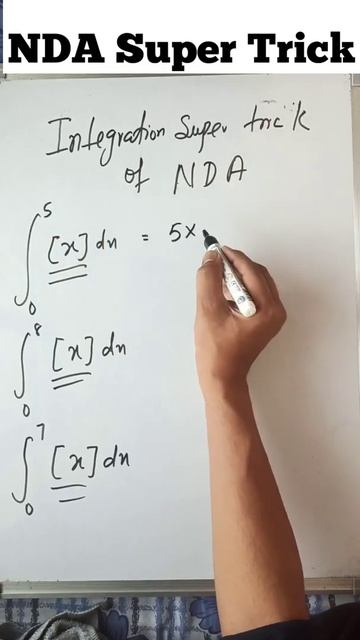 NDA Super Trick
Integration Super trick
of NDA
∫₀⁵ [x] dx = 5×
∫₀⁸ [x] dx
∫₀⁷ [x] dx